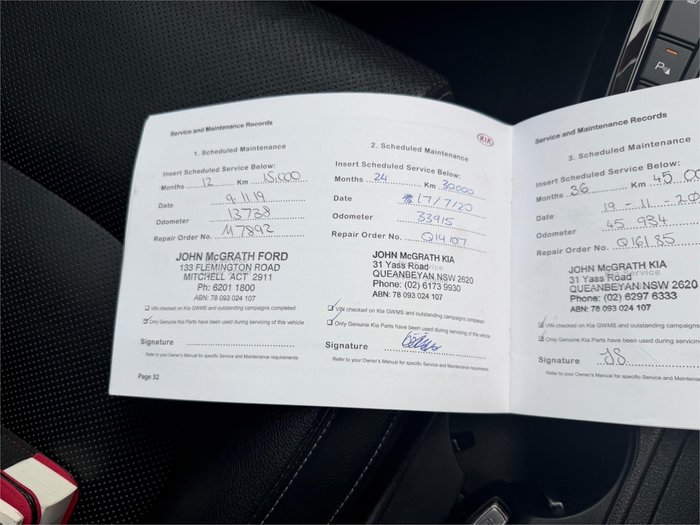 Service and Maintenance Records
1. Scheduled Maintenance
Insert Scheduled Service Below:
Months 12 Km 15,000
Date 9.11.19
Odometer 13738
Repair Order No. M7892
JOHN McGRATH FORD
133 FLEMINGTON ROAD
MITCHELL ACT 2911
Ph: 6201 1800
ABN: 78 093 024 107
VIN checked on Kia GWMS and outstanding campaigns completed
Only Genuine Kia Parts have been used during servicing of this vehicle
Signature
Refer to your Owner's Manual for specific Service and Maintenance requirements
Page 32
KIA
2. Scheduled Maintenance
Insert Scheduled Service Below:
Months 24 Km 30,000
Date 17/7/20
Odometer 33915
Repair Order No. Q14107
JOHN McGRATH KIA
31 Yass Road
QUEANBEYAN NSW 2620
Phone: (02) 6173 9930
ABN: 78 093 024 107
VIN checked on Kia GWMS and outstanding campaigns completed
Only Genuine Kia Parts have been used during servicing of this vehicle
Signature
Refer to your Owner's Manual for specific Service and Maintenance requirements
Service and Maintenance Records
3. Scheduled Maintenance
Insert Scheduled Service Below:
Months 36 Km 45 00
Date 19-11-20
Odometer 45 934
Repair Order No. Q16185
JOHN McGRATH KIA
31 Yass Road
QUEANBEYAN NSW 2620
Phone: (02) 6297 6333
ABN: 78 093 024 107
VIN checked on Kia GWMS and outstanding campaigns completed
Only Genuine Kia Parts have been used during servicing
Signature JS
Refer to your Owner's Manual for specific Service and Maintenance
P